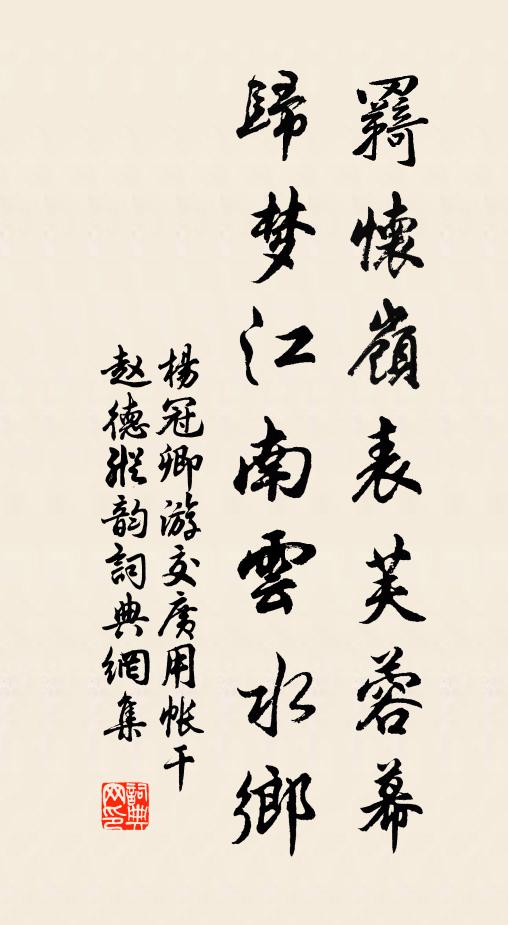 羇懷嶺表芙蓉幕
歸梦江南雲水鄉
楊冠卿游交廣用帐干
赵德縱韵詞典網集
詞典网印